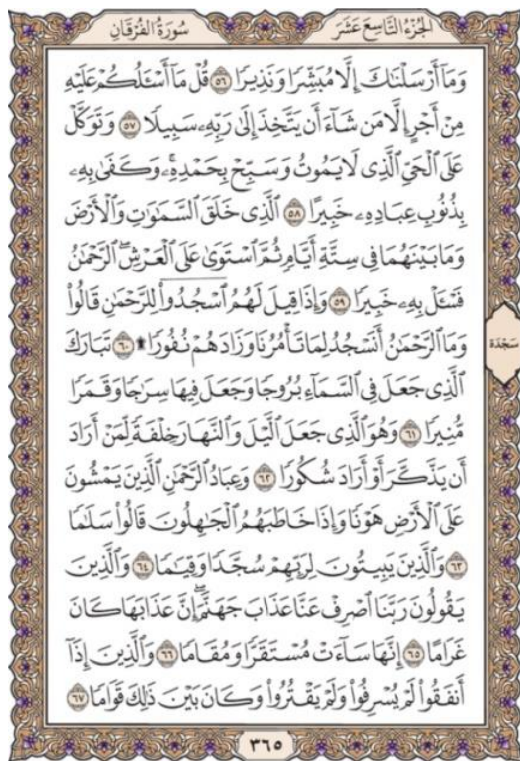 الجُزْءُ التَّاسِعَ عَشَرَ
سُورَةُ الفُرْقَانِ
وَمَآ أَرۡسَلۡنَٰكَ إِلَّا مُبَشِّرٗا وَنَذِيرٗا ٥٦ قُلۡ مَآ أَسۡـَٔلُكُمۡ عَلَيۡهِ
مِنۡ أَجۡرٍ إِلَّا مَن شَآءَ أَن يَتَّخِذَ إِلَىٰ رَبِّهِۦ سَبِيلٗا ٥٧ وَتَوَكَّلۡ
عَلَى ٱلۡحَيِّ ٱلَّذِي لَا يَمُوتُ وَسَبِّحۡ بِحَمۡدِهِۦۚ وَكَفَىٰ بِهِۦ
بِذُنُوبِ عِبَادِهِۦ خَبِيرًا ٥٨ ٱلَّذِي خَلَقَ ٱلسَّمَٰوَٰتِ وَٱلۡأَرۡضَ
وَمَا بَيۡنَهُمَا فِي سِتَّةِ أَيَّامٖ ثُمَّ ٱسۡتَوَىٰ عَلَى ٱلۡعَرۡشِۖ ٱلرَّحۡمَٰنُ
فَسۡـَٔلۡ بِهِۦ خَبِيرٗا ٥٩ وَإِذَا قِيلَ لَهُمُ ٱسۡجُدُواْۤ لِلرَّحۡمَٰنِ قَالُواْ
وَمَا ٱلرَّحۡمَٰنُ أَنَسۡجُدُ لِمَا تَأۡمُرُنَا وَزَادَهُمۡ نُفُورٗا۩ ٦٠ تَبَارَكَ
سَجْدَة
ٱلَّذِي جَعَلَ فِي ٱلسَّمَآءِ بُرُوجٗا وَجَعَلَ فِيهَا سِرَٰجٗا وَقَمَرٗا
مُّنِيرٗا ٦١ وَهُوَ ٱلَّذِي جَعَلَ ٱلَّيۡلَ وَٱلنَّهَارَ خِلۡفَةٗ لِّمَنۡ أَرَادَ
أَن يَذَّكَّرَ أَوۡ أَرَادَ شُكُورٗا ٦٢ وَعِبَادُ ٱلرَّحۡمَٰنِ ٱلَّذِينَ يَمۡشُونَ
عَلَى ٱلۡأَرۡضِ هَوۡنٗا وَإِذَا خَاطَبَهُمُ ٱلۡجَٰهِلُونَ قَالُواْ سَلَٰمٗا
٦٣ وَٱلَّذِينَ يَبِيتُونَ لِرَبِّهِمۡ سُجَّدٗا وَقِيَٰمٗا ٦٤ وَٱلَّذِينَ
يَقُولُونَ رَبَّنَا ٱصۡرِفۡ عَنَّا عَذَابَ جَهَنَّمَۖ إِنَّ عَذَابَهَا كَانَ
غَرَامًا ٦٥ إِنَّهَا سَآءَتۡ مُسۡتَقَرّٗا وَمُقَامٗا ٦٦ وَٱلَّذِينَ إِذَآ
أَنفَقُواْ لَمۡ يُسۡرِفُواْ وَلَمۡ يَقۡتُرُواْ وَكَانَ بَيۡنَ ذَٰلِكَ قَوَامٗا ٦٧
٣٦٥